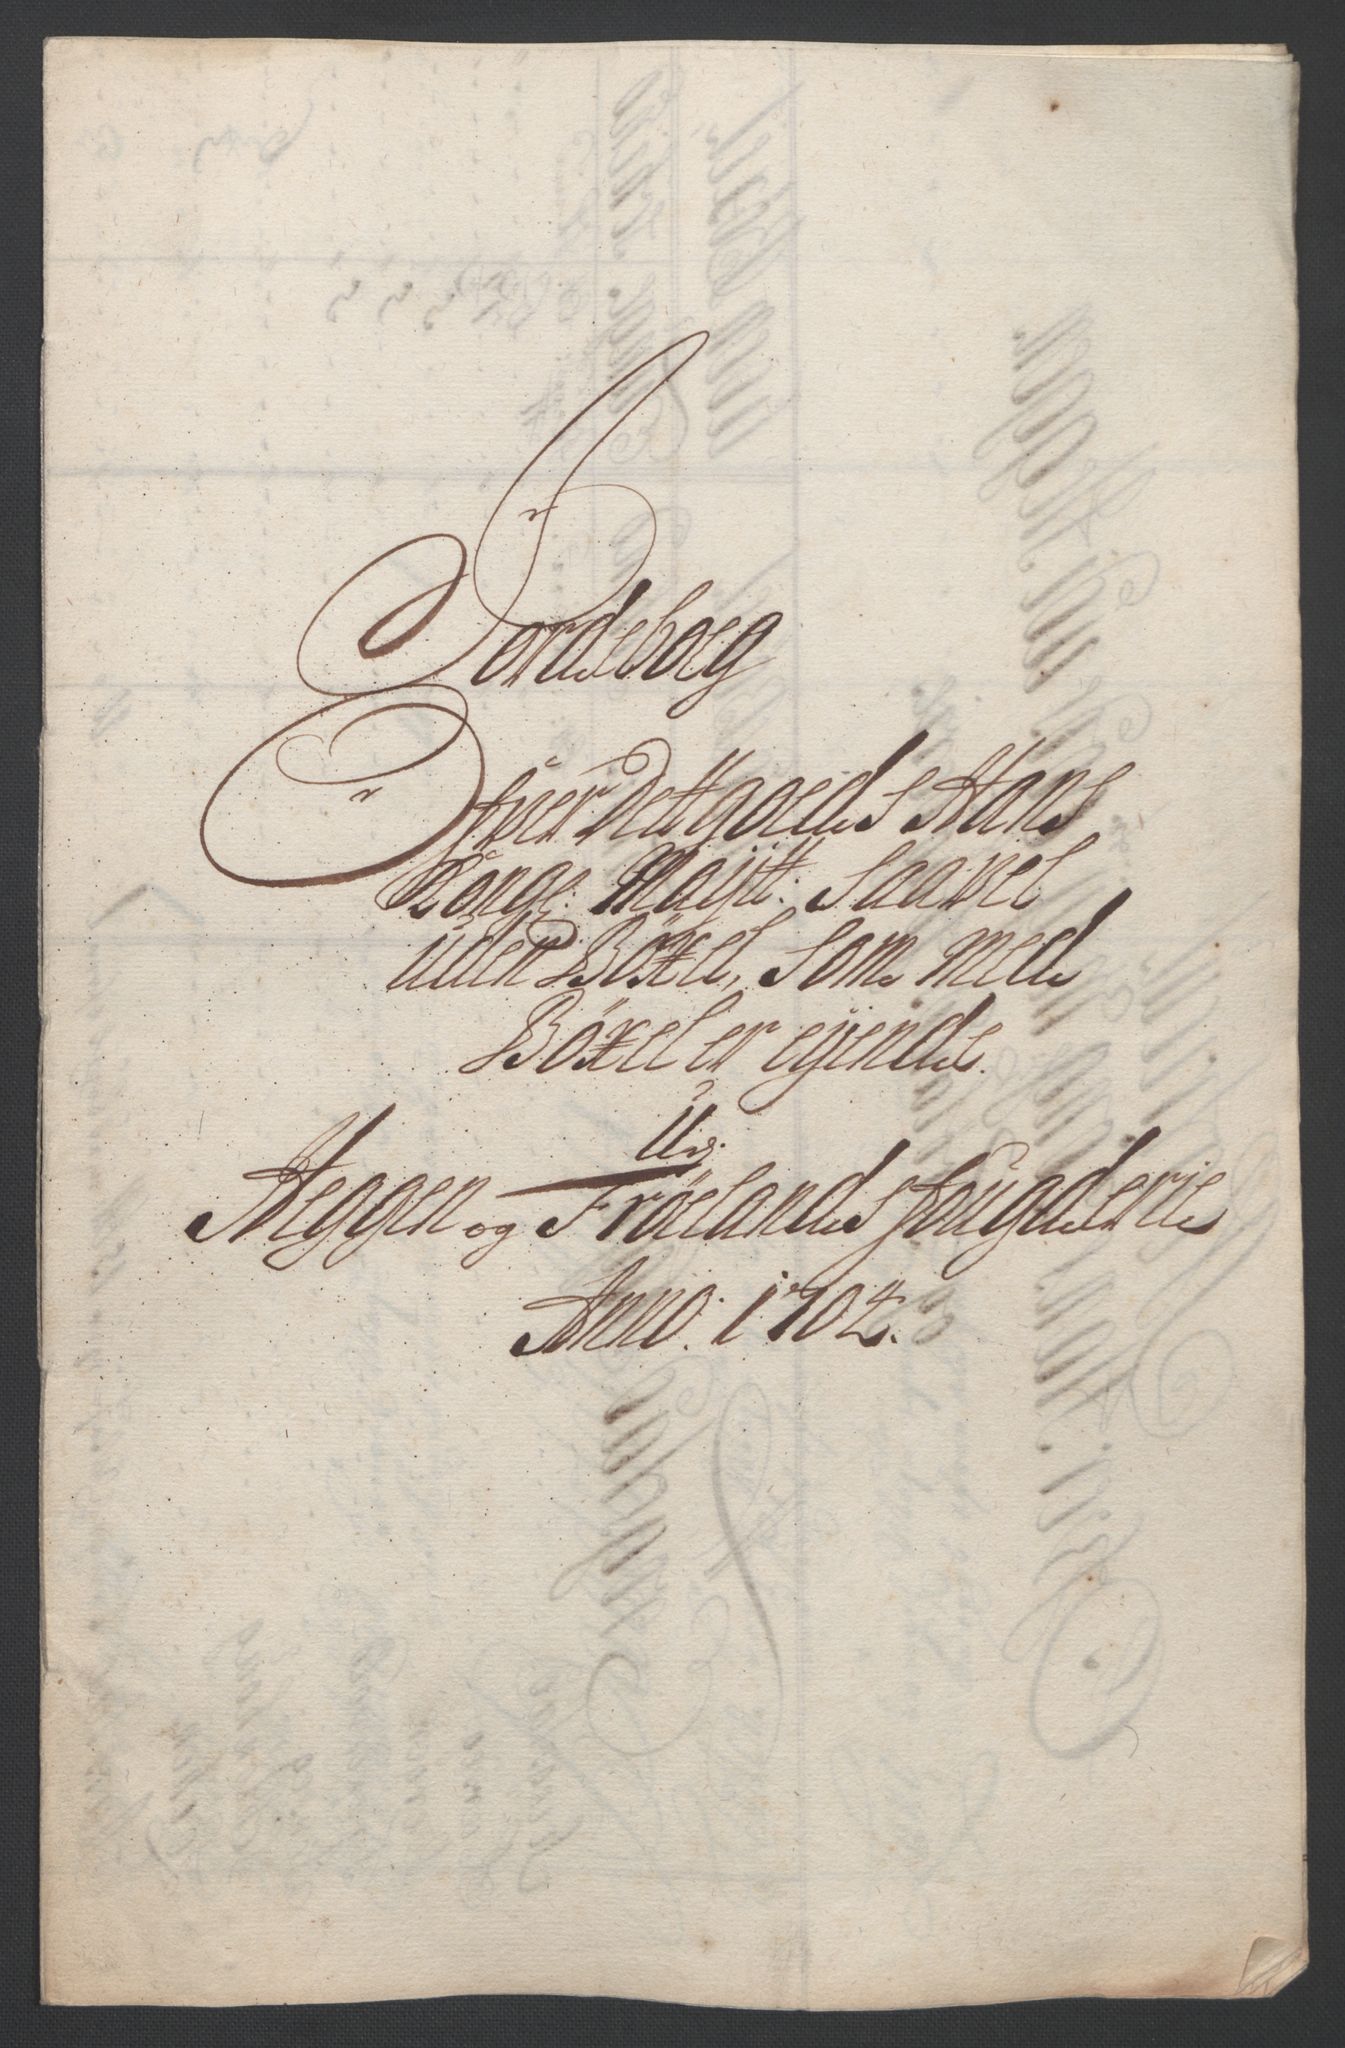 Jordeboeg
Ofver Dett goeds Hans
Konge: Mayst: Saavel
uden Böxel, Som med
Böxel er eyende.
Udj
Heggen og Fröelands fougderie
Anno: 1702.